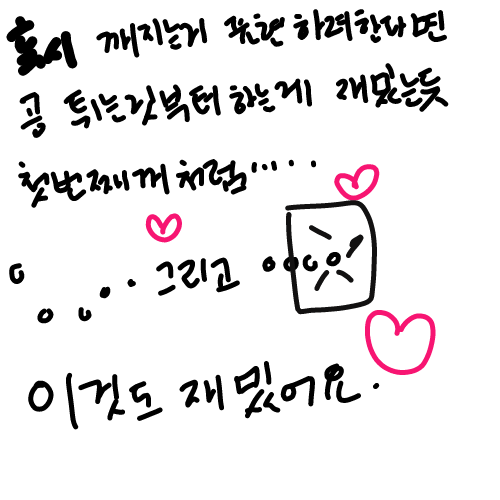 혹시 깨지는거 표현 하려한다면
공 튀는것부터 하는게 재밌는듯
첫번째꺼처럼.....
그리고
이것도 재밌어요.